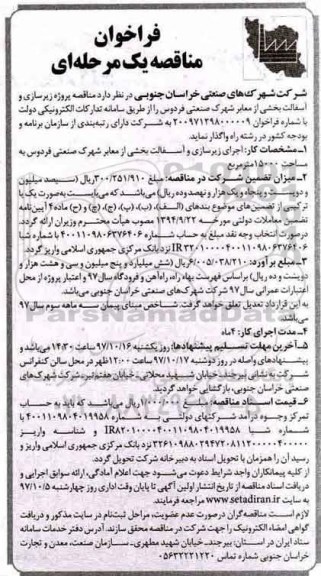 فراخوان
مناقصه یک مرحله‌ای
شرکت شهرک‌های صنعتی خراسان جنوبی در نظر دارد مناقصه پروژه زیرسازی و
آسفالت بخشی از معابر شهرک صنعتی فردوس را از طریق سامانه تدارکات الکترونیکی دولت
با شماره فراخوان ۲۰۰۹۷۱۲۹۸۰۰۰۰۰۹ به شرکت دارای رتبه‌بندی از سازمان برنامه و
بودجه کشور در رشته راه واگذار نماید.
۱-مشخصات کار: اجرای زیرسازی و آسفالت بخشی از معابر شهرک صنعتی فردوس به
مساحت ۱۵۰۰۰ مترمربع
۲-میزان تضمین شرکت در مناقصه: مبلغ ۳۰۰/۲۵۱/۹۱۰ ریال (سیصد میلیون
و دویست و پنجاه و یک هزار و نهصد و ده ریال) می‌باشد که می‌بایست به‌صورت یک یا
ترکیبی از تضمین‌های موضوع بندهای (الف)، (ب)، (پ)، (ج)، (چ) و (ح) ماده ۴ آیین‌نامه
تضمین معاملات دولتی مورخه ۱۳۹۴/۹/۲۲ مصوب هیأت محترم وزیران ارائه گردد.
درصورت انتخاب وجه نقد مبلغ به حساب شماره ۴۰۰۱۱۰۹۸۰۶۳۷۶۴۰۶ با شماره شبا
نزد بانک مرکزی جمهوری اسلامی واریز گردد.
۳-مبلغ برآورد: ۶/۰۰۵/۰۳۸/۲۱۰ ریال (شش میلیارد و پنج میلیون و سی و هشت هزار و
دویست و ده ریال) براساس فهرست بهاء راه، راه‌آهن و فرودگاه سال ۹۷ و اعتبار پروژه از محل
اعتبارات عمرانی سال ۹۷ شرکت شهرک‌های صنعتی خراسان جنوبی می‌باشد.
به این قرارداد تعدیل تعلق خواهد گرفت. شاخص مبنای پیمان سه ماهه سوم سال ۹۷
می‌باشد.
۴-مدت اجرای کار: ۴ ماه
۵-آخرین مهلت تسلیم پیشنهادها: روز یکشنبه ۹۷/۱۰/۱۶ ساعت ۱۴:۳۰ می‌باشد و
پیشنهادهای واصله در روز دوشنبه ۹۷/۱۰/۱۷ ساعت ۱۲:۰۰ ظهر در محل سالن کنفرانس
شرکت به نشانی بیرجند، خیابان شهید محلاتی، خیابان هفتم تیر، شرکت شهرک‌های
صنعتی خراسان جنوبی، بازگشایی خواهد گردید.
۶-قیمت اسناد مناقصه: مبلغ ۱/۰۰۰/۰۰۰ ریال می‌باشد که باید به حساب
تمرکز وجوه درآمد شرکتهای دولتی به شماره ۴۰۰۱۱۰۹۸۰۴۰۱۹۹۵۸ با
شماره شبا و شناسه واریز
نزد بانک مرکزی جمهوری اسلامی واریز و
رسید آن را همزمان با تحویل اسناد به دبیرخانه شرکت تحویل گردد.
از کلیه پیمانکاران واجد شرایط دعوت می‌شود جهت اعلام آمادگی، ارائه سوابق اجرایی و
دریافت اسناد مناقصه از تاریخ انتشار اولین آگهی تا پایان وقت اداری روز چهارشنبه ۹۷/۱۰/۵
به سایت www.setadiran.ir مراجعه فرمایند.
لازم است مناقصه‌گران درصورت عدم عضویت، مراحل ثبت‌نام در سایت مذکور و دریافت
گواهی امضاء الکترونیک را جهت شرکت در مناقصه محقق سازند. آدرس دفتر خدمات سامانه
ستاد ایران در استان: بیرجند، خیابان شهید مطهری، سازمان صنعت، معدن و تجارت
خراسان جنوبی شماره تماس ۰۵۶۳۲۲۲۱۲۲۰